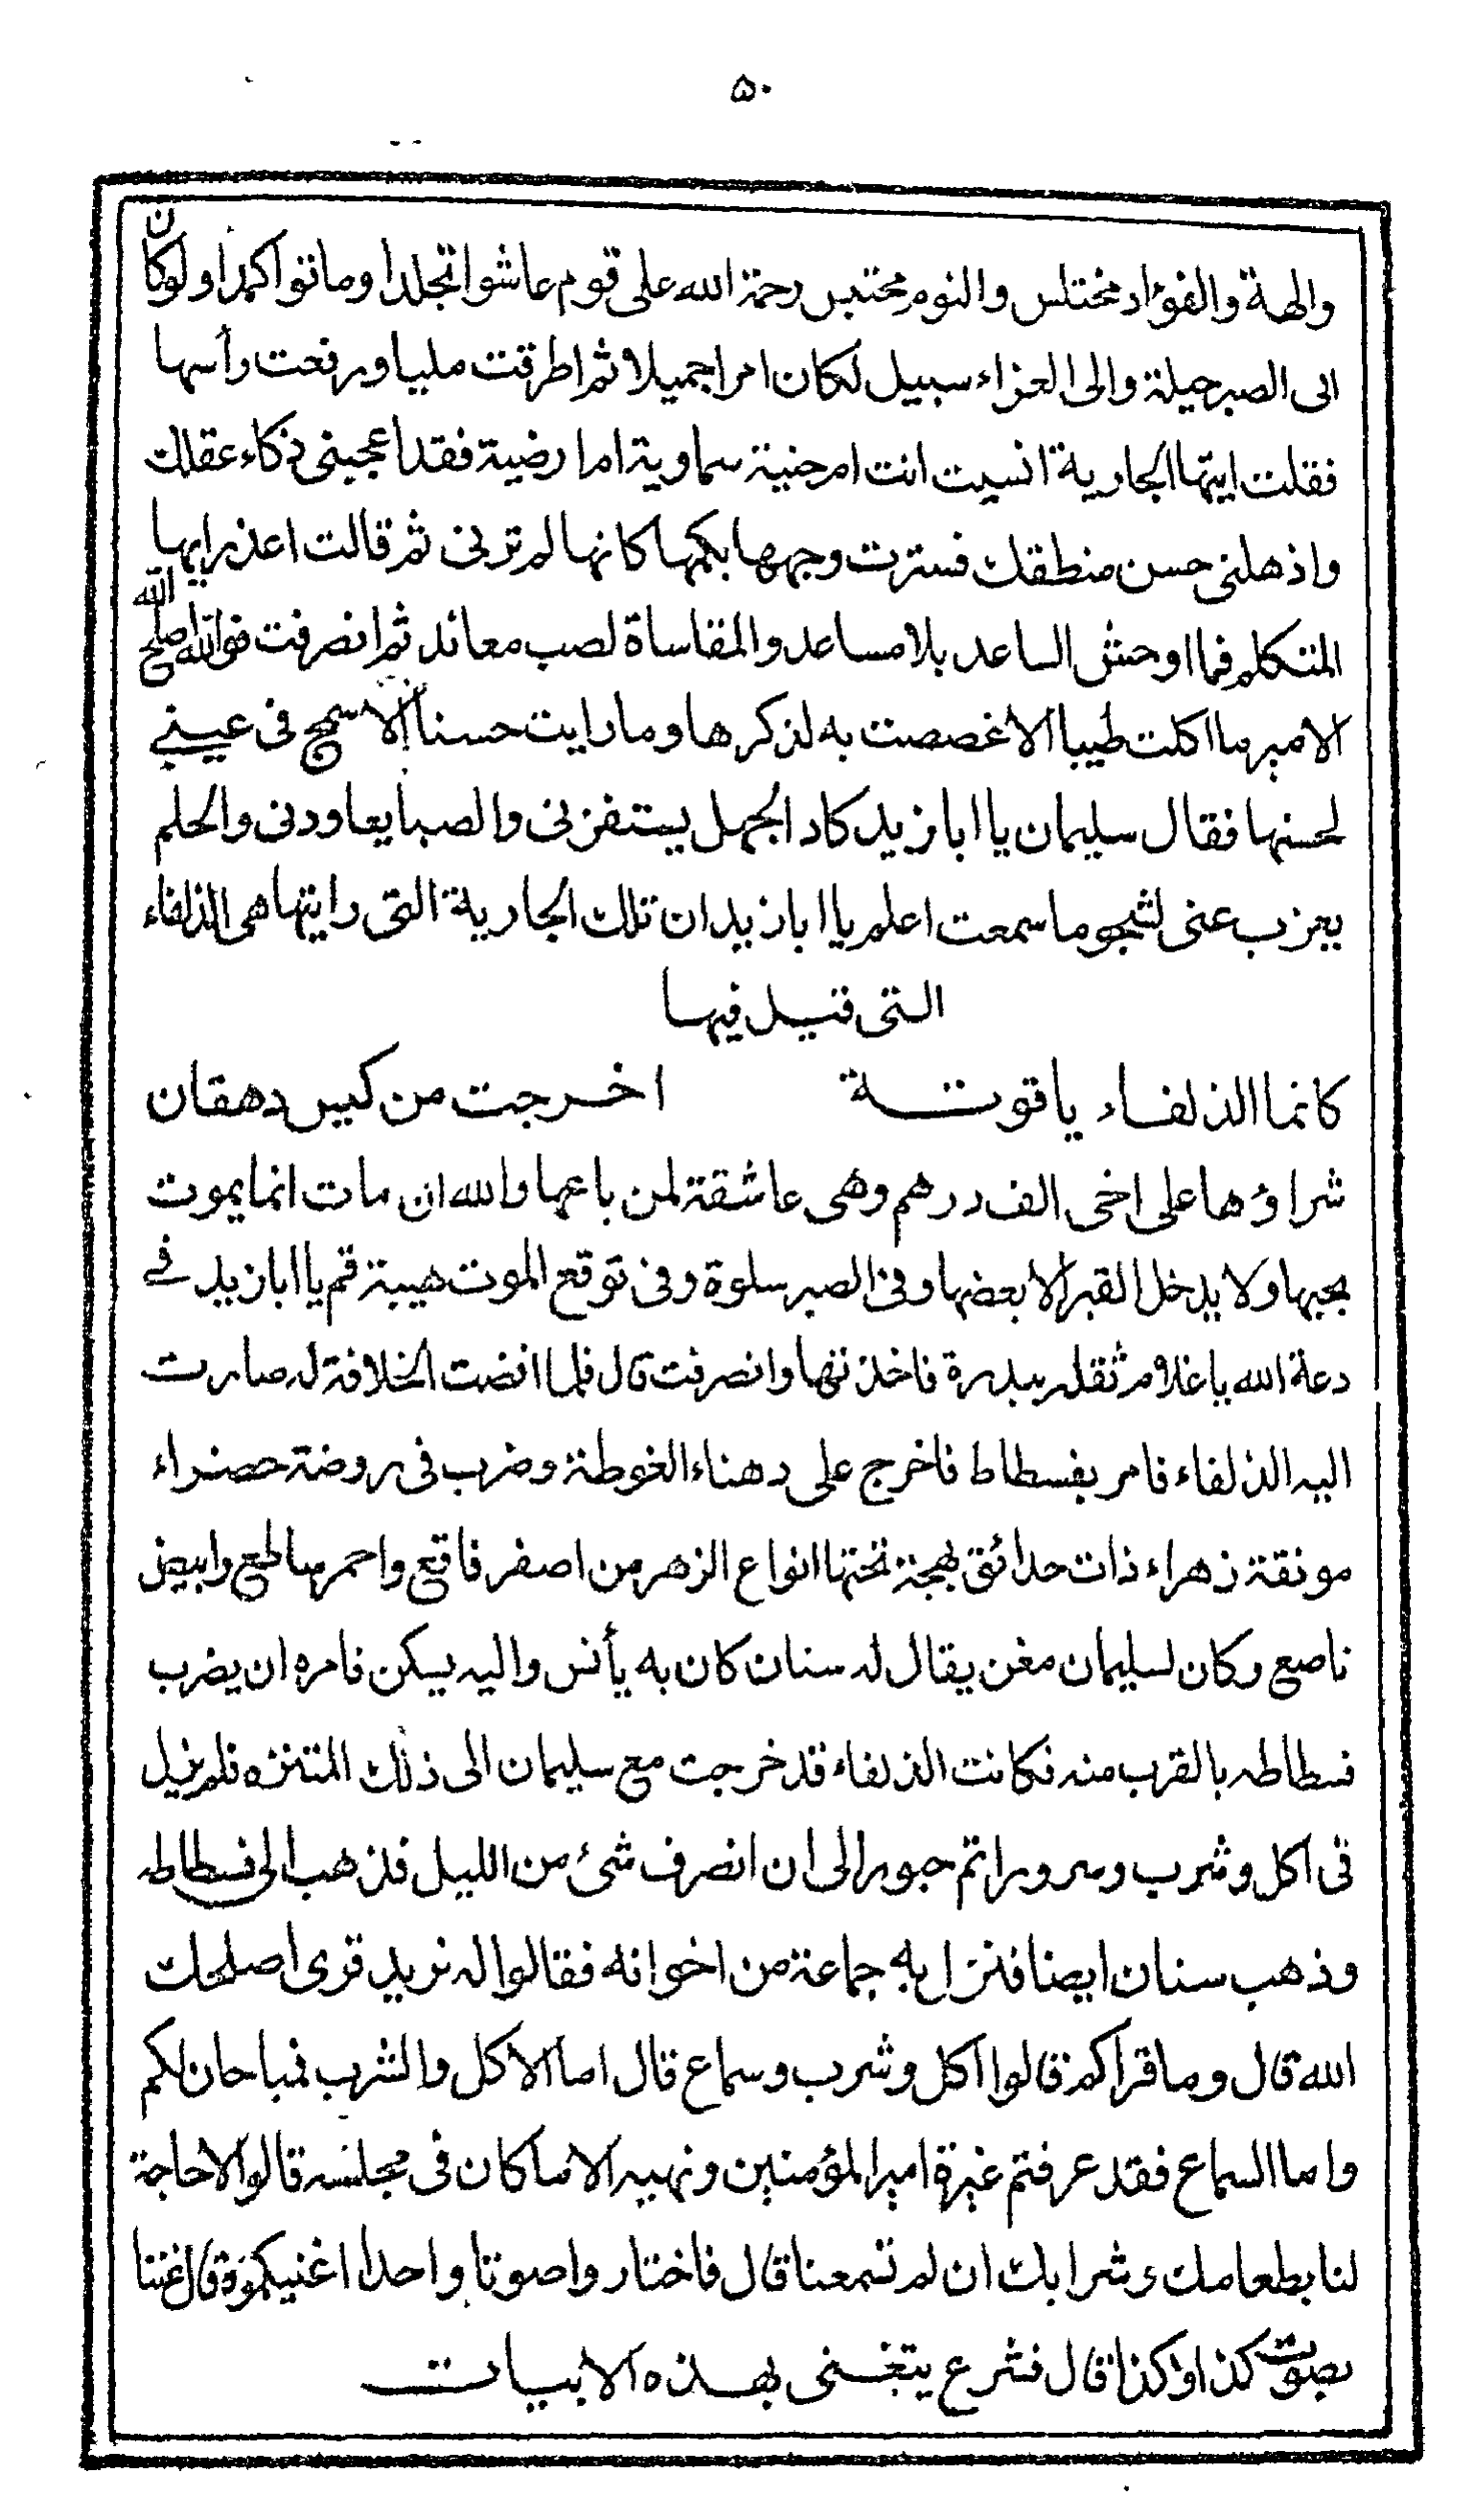 ۵۰
والهة والفؤاد مختلس والنوم محتبس رحمة الله على قوم عاشوا تجلدا وماتوا كمدا ولوكان
الى الصبر حيلة والى العزاء سبيل لكان امرا جميلا ثم اطرقت مليا ورفعت رأسها
فقلت ايتها الجارية انسية انت ام جنية سماوية ام ارضية فقد اعجبنى ذكاء عقلك
واذهلنى حسن منطقك فسترت وجهها بكمها كانها لم ترنى ثم قالت اعذر ايها
المتكلم فما اوحش الساعد بلا مساعد والمقاساة لصب معاند ثم انصرفت فوالله اصلح الله
الامير ما اكلت طيبا الا غصصت به لذكرها وما رايت حسنا الا سمج فى عينى
لحسنها فقال سليمان يا ابا زيد كاد الجهل يستفزنى والصبا يعاودنى والحلم
يعزب عنى لشجو ما سمعت اعلم يا ابا زيد ان تلك الجارية التى رايتها هى الذلفاء
التى قيل فيها
كانما الذلفاء ياقوتة اخرجت من كيس دهقان
شراؤها على اخى الف درهم وهى عاشقة لمن باعها والله ان مات انما يموت
بحبها ولا يدخل القبر الا بغصتها وفى الصبر سلوة وفى توقع الموت هيبة قم يا ابا زيد فى
دعة الله يا غلام ثقله ببدرة فاخذتها وانصرفت قال فلما افضت الخلافة له صارت
اليه الذلفاء فامر بفسطاط فاخرج على دهناء الغوطة وضرب فى روضة خضراء
مونقة زهراء ذات حدائق بهجة تحتها انواع الزهر من اصفر فاقع واحمر ساطع وابيض
ناصع وكان لسليمان مغن يقال له سنان كان به يأنس واليه يسكن فامره ان يضرب
فسطاطه بالقرب منه فكانت الذلفاء قد خرجت مع سليمان الى ذلك المتنزه فلم يزل
فى اكل وشرب وسرور اتم حبور الى ان انصرف شئ من الليل فذهب الى فسطاطه
وذهب سنان ايضا فنزل به جماعة من اخوانه فقالوا له نريد قرى اصلحك
الله قال وما قراكم قالوا اكل وشرب وسماع قال اما الاكل والشرب فمباحان لكم
واما السماع فقد عرفتم غيرة امير المؤمنين ونهيه الا ما كان فى مجلسه قالوا لا حاجة
لنا بطعامك وشرابك ان لم تسمعنا قال فاختاروا صوتا واحدا اغنيكموه قال غننا
بصوت كذا وكذا قال فشرع يتغنى بهذه الابيات